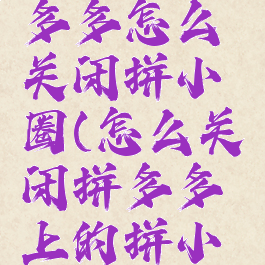 多多怎么
关闭拼小
圈(怎么关
闭拼多多
上的拼小